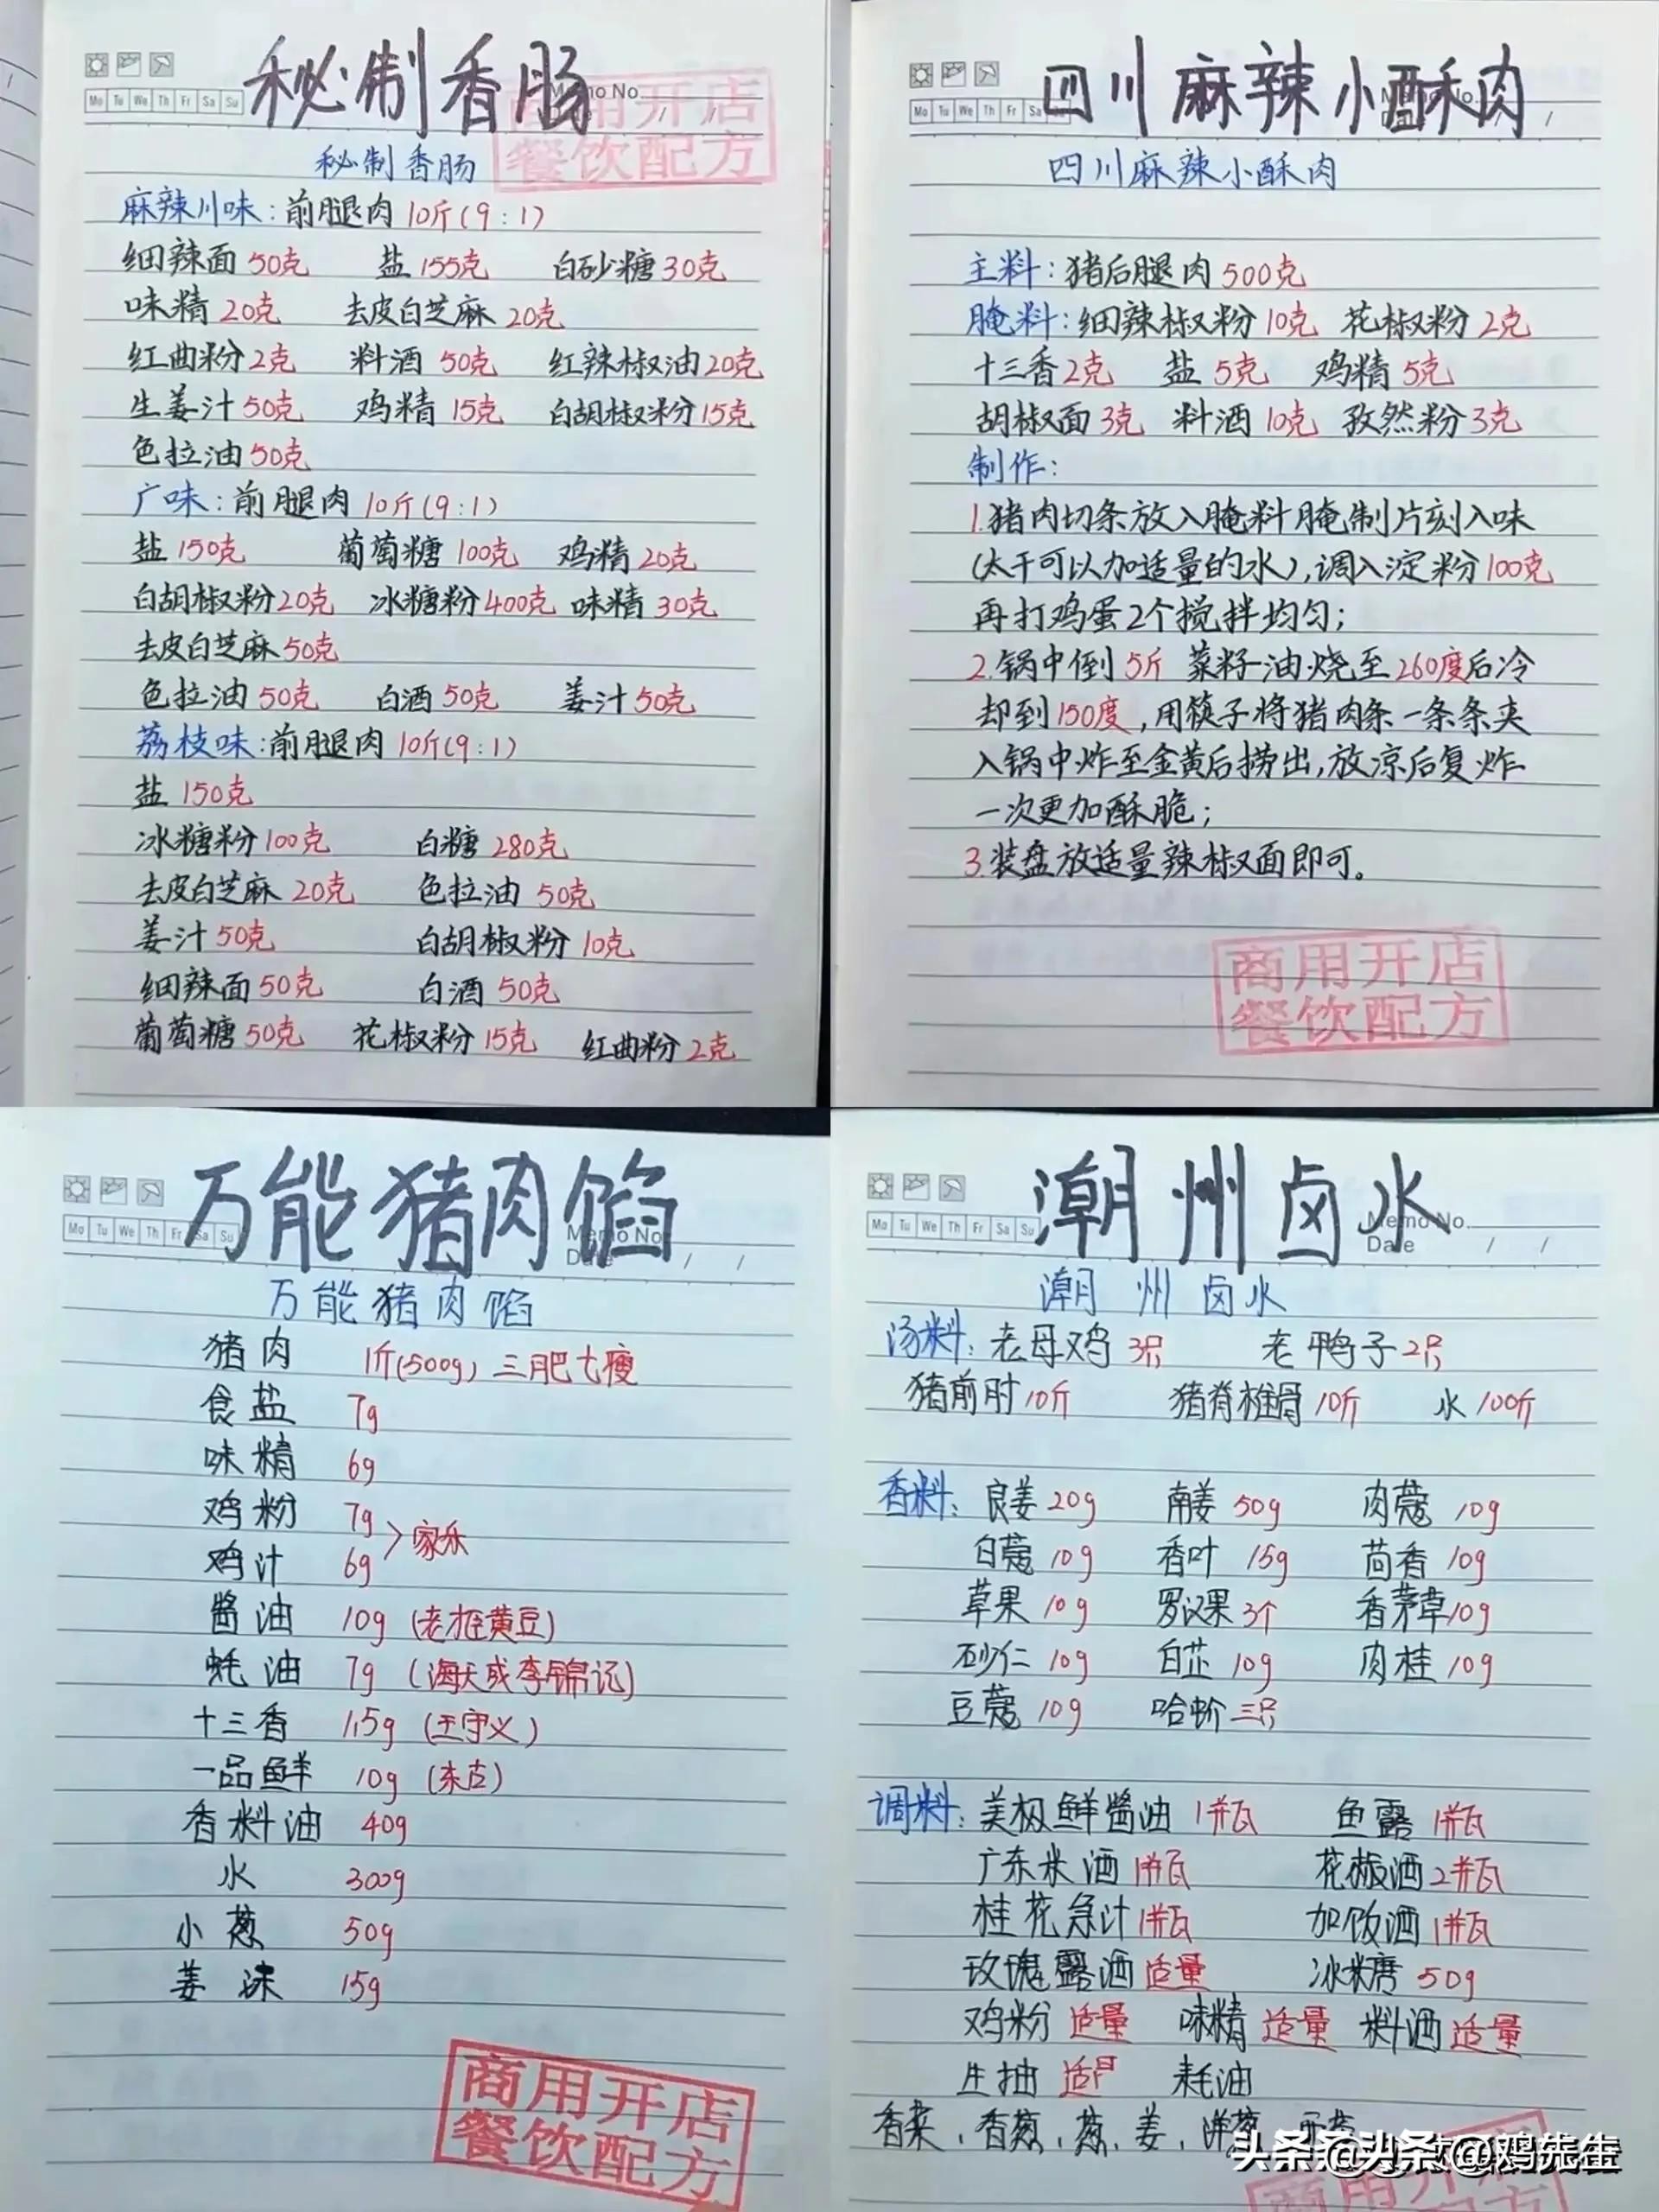 秘制香肠
Mo Tu We Th Fr Sa Su
Memo No.
商用开店
餐饮配方
秘制香肠
麻辣川味:前腿肉10斤(9:1)
细辣面50克 盐155克 白砂糖30克
味精20克 去皮白芝麻20克
红曲粉2克 料酒50克 红辣椒油20克
生姜汁50克 鸡精15克 白胡椒粉15克
色拉油50克
广味:前腿肉10斤(9:1)
盐150克 葡萄糖100克 鸡精20克
白胡椒粉20克 冰糖粉400克 味精30克
去皮白芝麻50克
色拉油50克 白酒50克 姜汁50克
荔枝味:前腿肉10斤(9:1)
盐150克
冰糖粉100克 白糖280克
去皮白芝麻20克 色拉油50克
姜汁50克 白胡椒粉10克
细辣面50克 白酒50克
葡萄糖50克 花椒粉15克 红曲粉2克
四川麻辣小酥肉
Mo Tu We Th Fr Sa
四川麻辣小酥肉
主料:猪后腿肉500克
腌料:细辣椒粉10克 花椒粉2克
十三香2克 盐5克 鸡精5克
胡椒面3克 料酒10克 孜然粉3克
制作:
1.猪肉切条放入腌料腌制片刻入味
(太干可以加适量的水),调入淀粉100克
再打鸡蛋2个搅拌均匀;
2.锅中倒5斤菜籽油烧至260度后冷
却到150度,用筷子将猪肉条一条条夹
入锅中炸至金黄后捞出,放凉后复炸
一次更加酥脆;
3.装盘放适量辣椒面即可。
商用开店
餐饮配方
万能猪肉馅
Mo Tu We Th Fr Sa Su
Memo No.
Date / /
万能猪肉馅
猪肉 1斤(500g)三肥七瘦
食盐 7g
味精 6g
鸡粉 7g
鸡汁 6g >家乐
酱油 10g(老恒黄豆)
蚝油 7g(海天或李锦记)
十三香 1.5g(王守义)
一品鲜 10g(东古)
香料油 40g
水 300g
小葱 50g
姜沫 15g
商用开店
餐饮配方
潮州卤水
Mo Tu We Th Fr Sa Su
Memo No.
Date / /
潮州卤水
汤料:老母鸡3只 老鸭子2只
猪前肘10斤 猪脊椎骨10斤 水100斤
香料:良姜20g 南姜50g 肉蔻10g
白蔻10g 香叶15g 茴香10g
草果10g 罗汉果3个 香茅草10g
砂仁10g 白芷10g 肉桂10g
豆蔻10g 哈蚧三只
调料:美极鲜酱油1瓶 鱼露1瓶
广东米酒1瓶 花椒酒2瓶
桂花急汁1瓶 加饭酒1瓶
玫瑰露酒适量 冰糖50g
鸡粉适量 味精适量 料酒适量
生抽适 耗油
香菜,香葱,葱,姜,洋葱
头条@鸡先生
商用开店